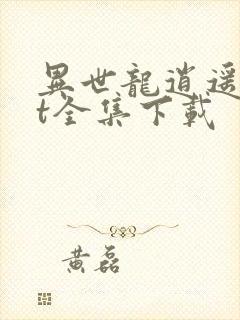 異世龍逍遥
t全集下載
黄磊